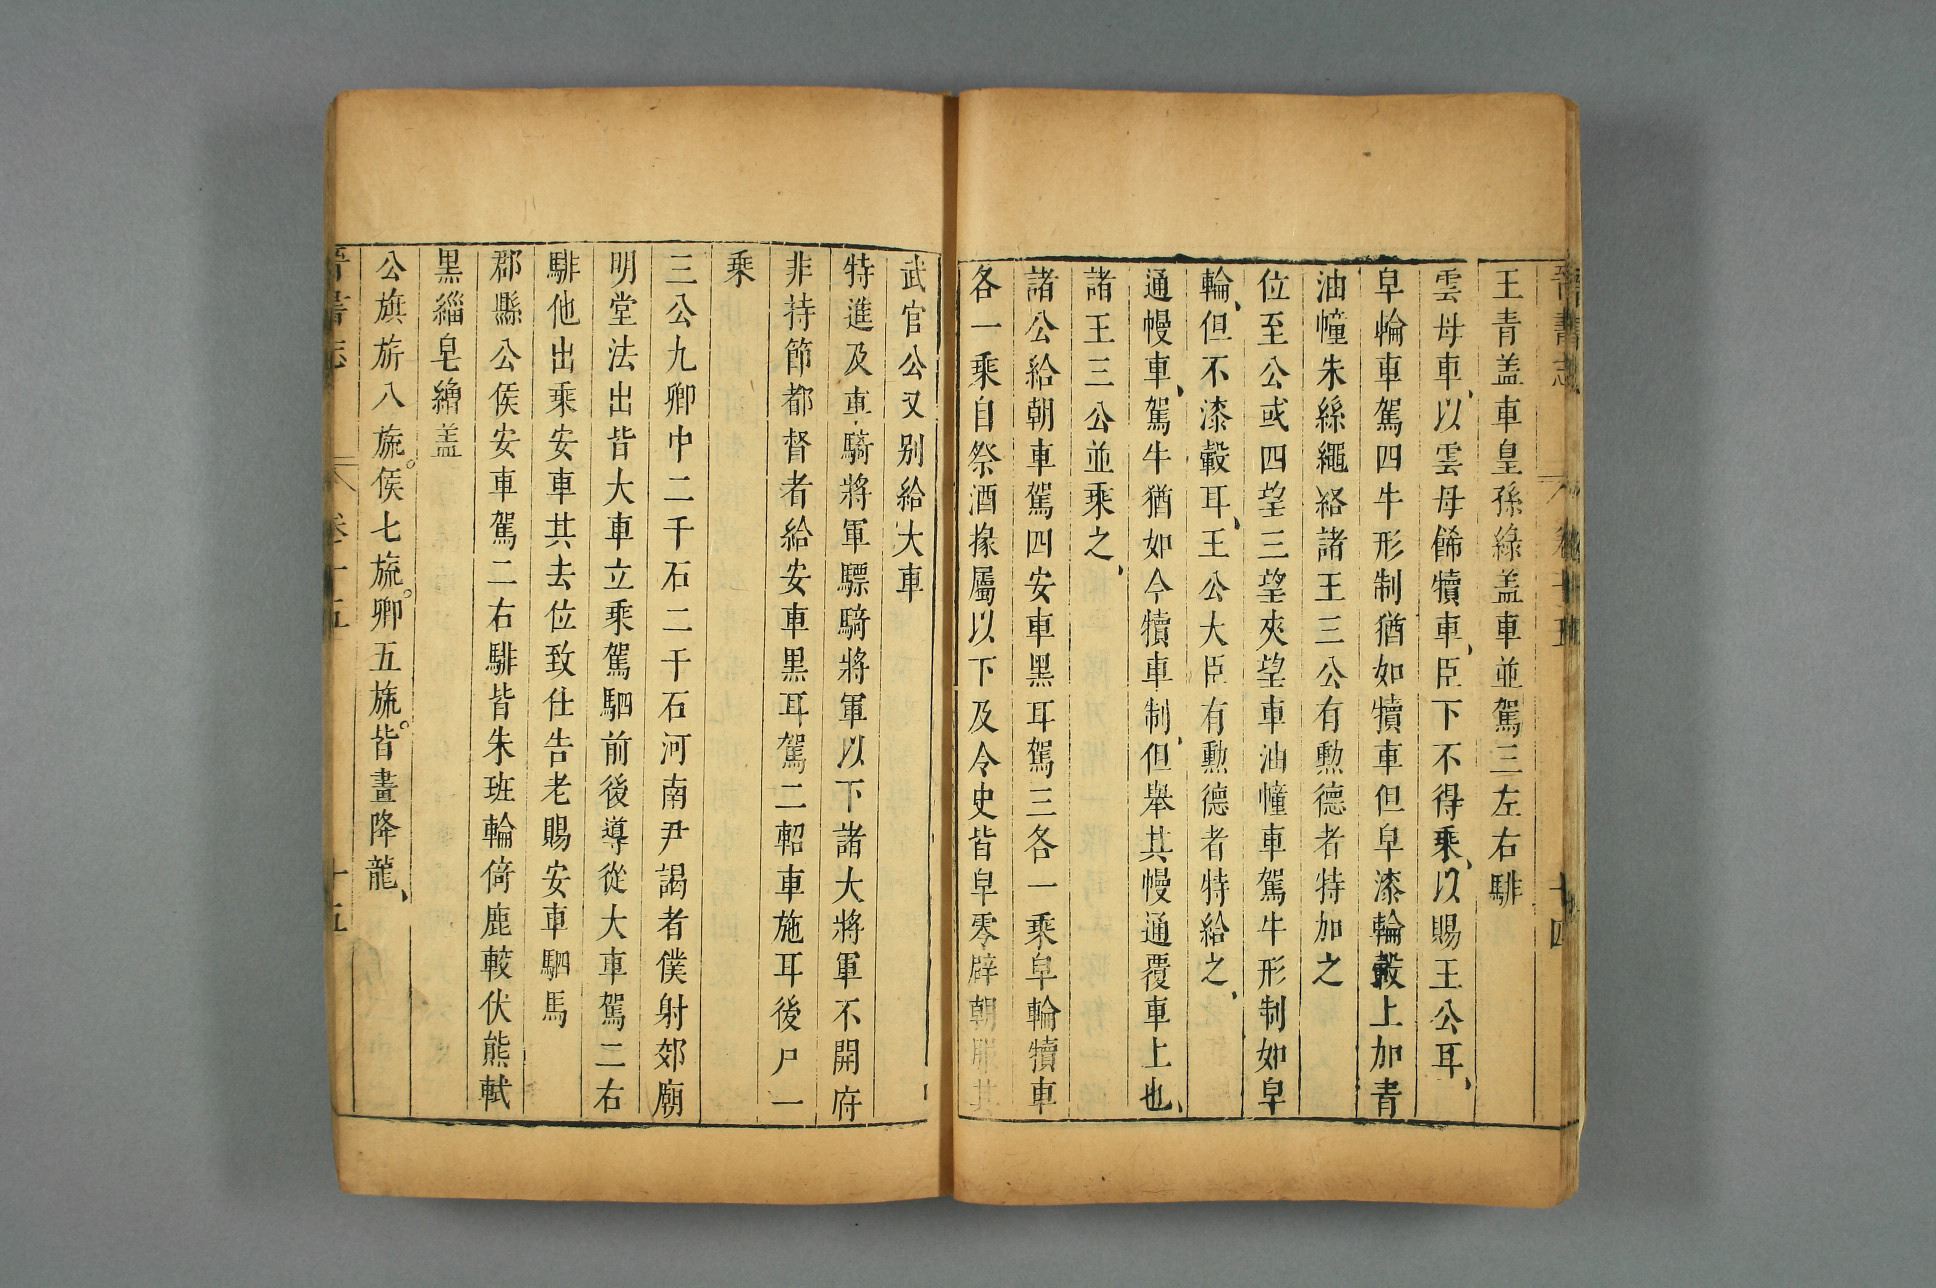 晉書志 卷十五 十四
王青盖車皇孫綠盖車並駕三左右騑
雲母車、以雲母餙犢車、臣下不得乘、以賜王公耳、
皁輪車駕四牛形制猶如犢車但皁漆輪轂上加青
油幢朱絲繩絡諸王三公有勲德者特加之
位至公或四望三望夾望車油幢車駕牛形制如皁
輪、但不漆轂耳、王公大臣有勲德者特給之、
通幔車、駕牛猶如今犢車制、但舉其幔通覆車上也、
諸王三公並乘之、
諸公給朝車駕四安車黑耳駕三各一乘皁輪犢車
各一乘自祭酒掾屬以下及令史皆皁零辟朝服其
武官公又别給大車
特進及車騎將軍驃騎將軍以下諸大將軍不開府
非持節都督者給安車黑耳駕二軺車施耳後戸一
乘
三公九卿中二千石二千石河南尹謁者僕射郊廟
明堂法出皆大車立乘駕駟前後導從大車駕二右
騑他出乘安車其去位致仕告老賜安車駟馬
郡縣公侯安車駕二右騑皆朱班輪倚鹿較伏熊軾
黑緇皂繒盖
公旗旂八旒。侯七旒。卿五旒。皆畫降龍、
晉書志 卷十五 十五